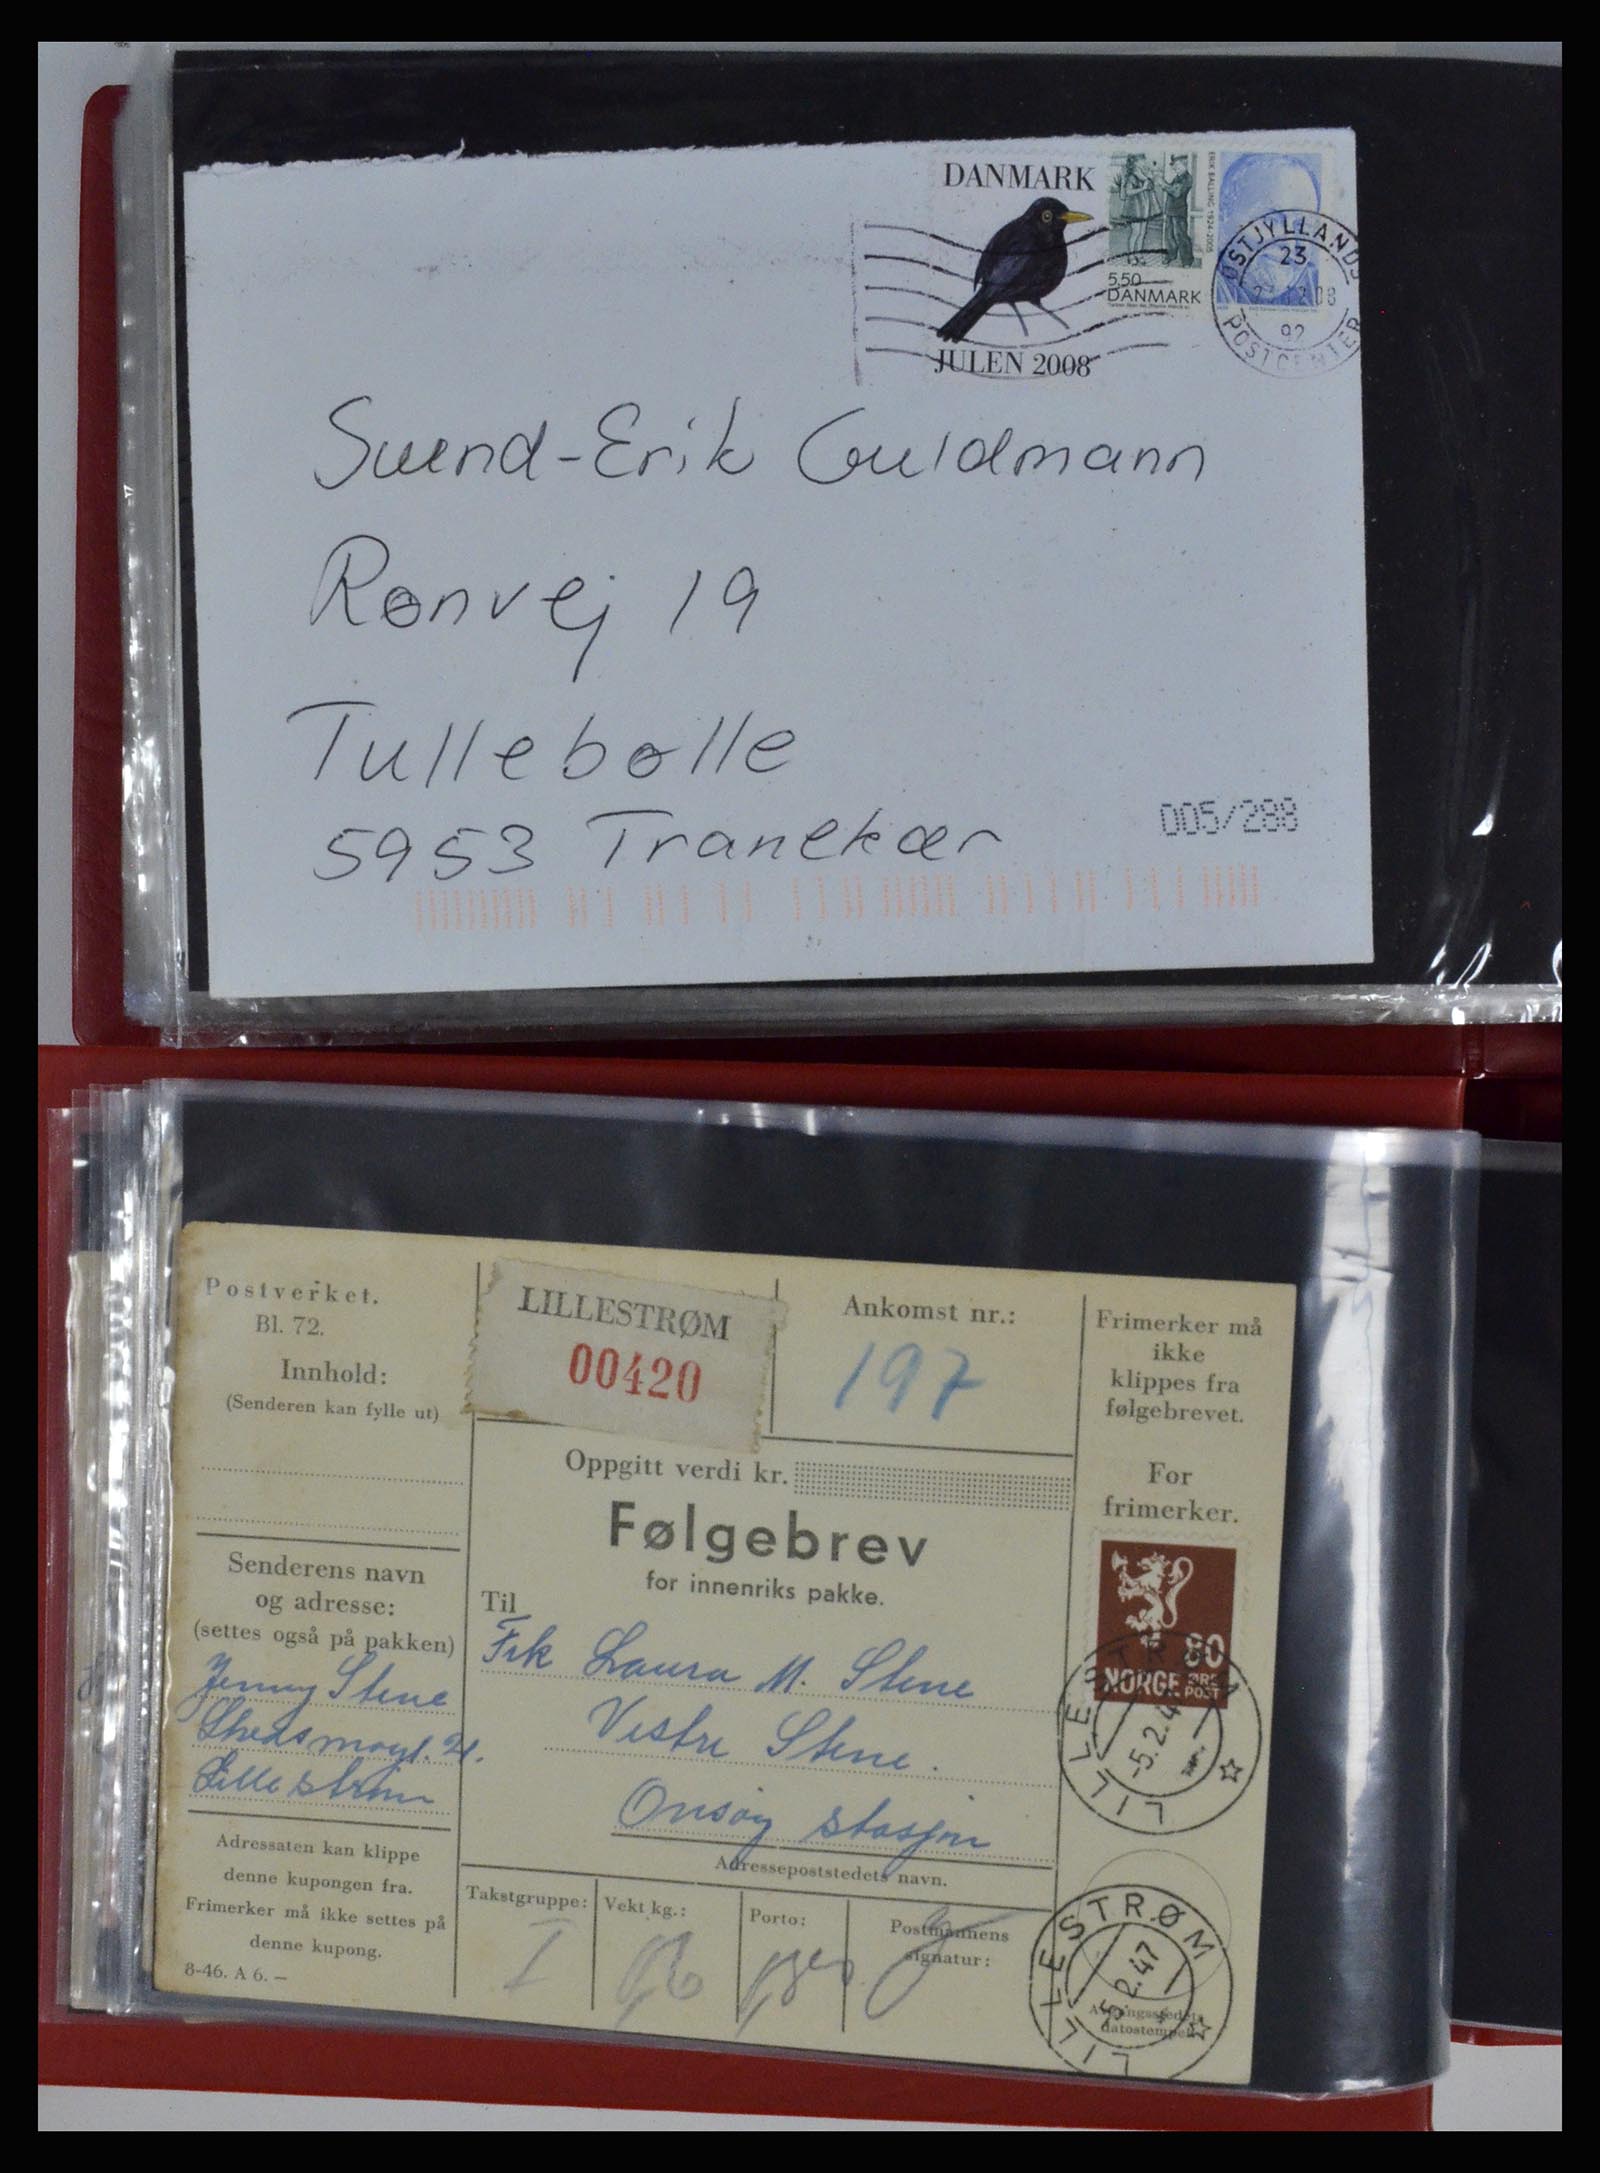 DANMARK
JULEN 2008
ERIK BALLING 1924-2005
5.50
DANMARK
ØSTJYLLANDS
23
92
POSTCENTER
Svend-Erik Guldmann
Rønvej 19
Tullebølle
5953 Tranekær
005/288
Postverket.
Bl. 72.
Innhold:
(Senderen kan fylle ut)
LILLESTRØM
00420
Ankomst nr.:
197
Frimerker må
ikke
klippes fra
følgebrevet.
For
frimerker.
Oppgitt verdi kr.
Følgebrev
for innenriks pakke.
Til
Frk Laura M. Stene
Vestre Stene.
Onsøy stasjon
Adressepoststedets navn.
80
NORGE ØRE
POST
LILLESTRØM
-5.2.47
Senderens navn
og adresse:
(settes også på pakken)
Jenny Stene
21.
Lillestrøm
Adressaten kan klippe
denne kupongen fra.
Frimerker må ikke settes på
denne kupong.
8-46. A 6. –
Takstgruppe:
I
Vekt kg.:
Porto:
Postmannens
signatur:
LILLESTRØM
-5.2.47
datostempel